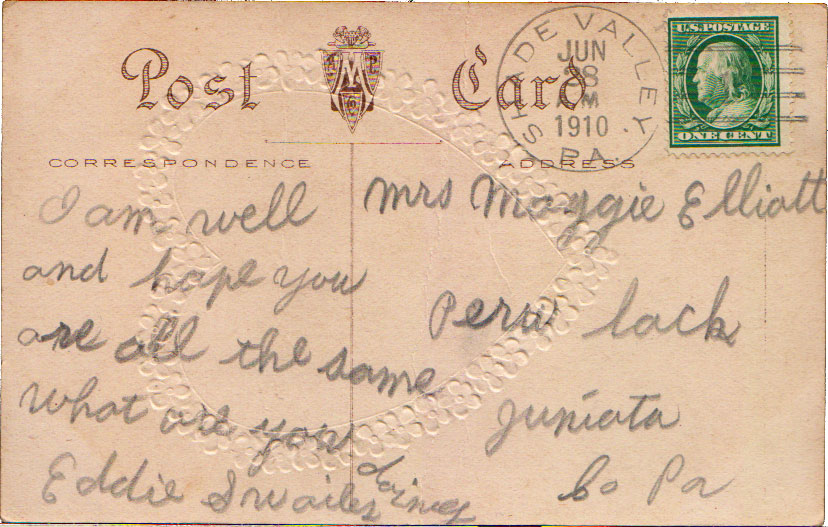 Post Card
SHADE VALLEY
JUN
28
AM
1910
PA.
U.S. POSTAGE
ONE CENT
CORRESPONDENCE
ADDRESS
I am well
and hope you
are all the same
what are you
doing
Eddie Swailes
Mrs Maggie Elliott
Peru lack
Juniata
Co Pa